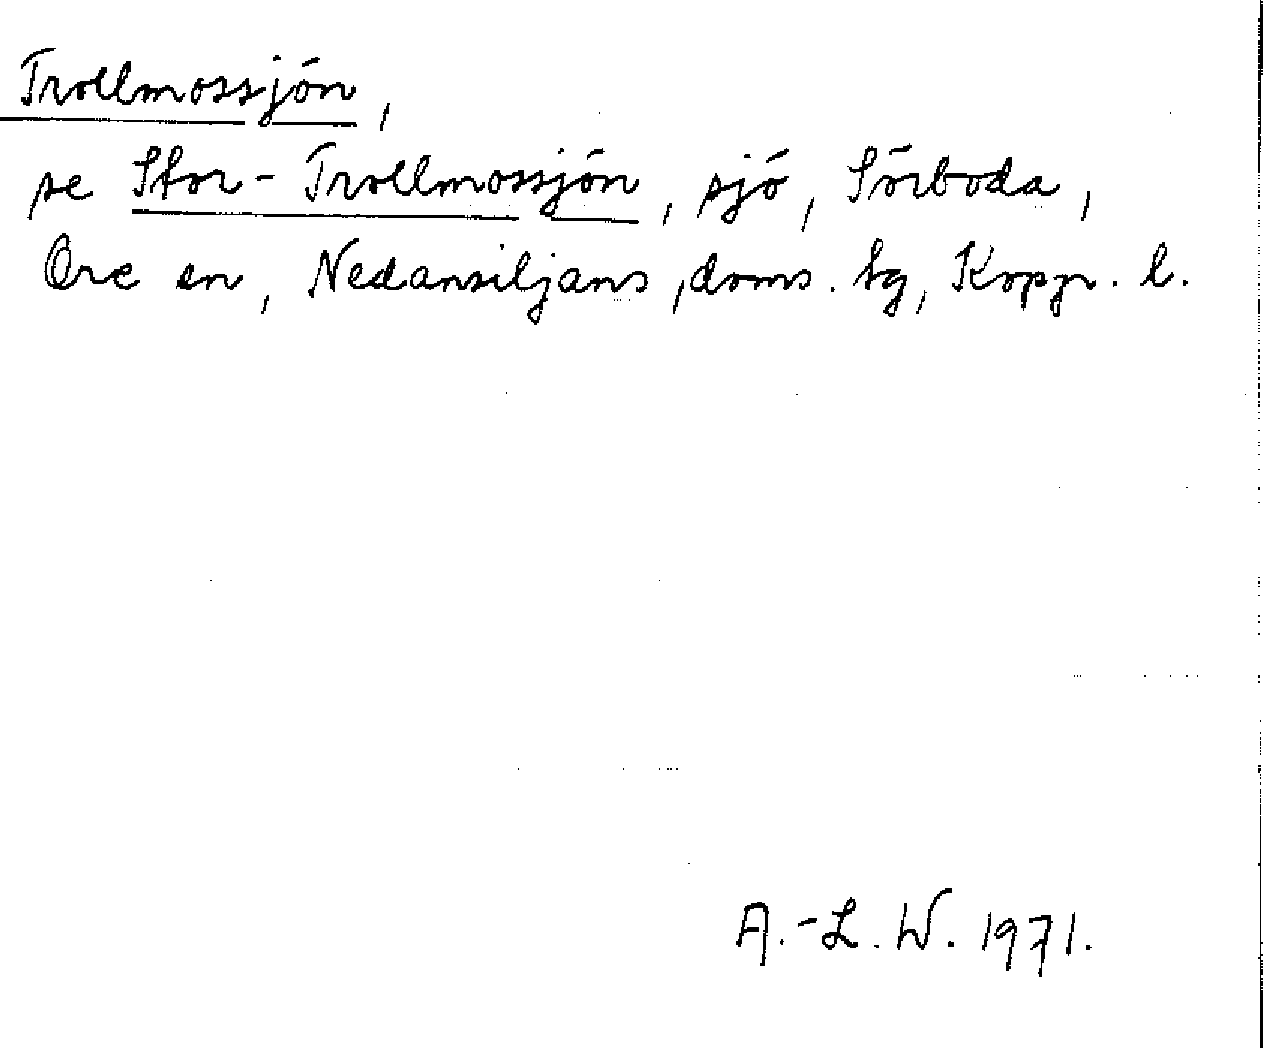 Trollmossjön,
se Stor-Trollmossjön, sjö, Sörboda,
Ore sn, Nedansiljans, doms. tg, Kopp. l.
A.-L. W. 1971.